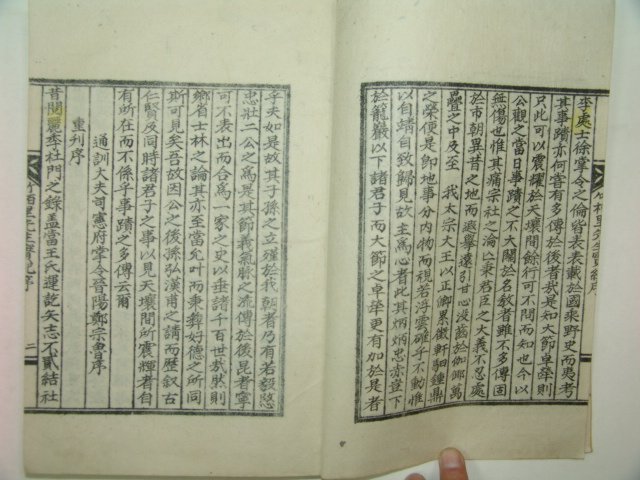 李處士徐掌令之倫皆表表載於國乘野史而夷考
其事蹟亦何嘗有多傳於後者哉是知大節卓犖則
只此可以震耀於天壤間餘行可不問而知也今以
公觀之當日事蹟之不大關於名敎者雖不多傳固
無傷也惟其痛宗社之淪亡秉君臣之大義不忍處
於市朝異昔之地而遯擧遠引甘心沒齒於伽倻萬
疊之中及至 我太宗大王以正卿累徵軒駟鍾鼎
之榮便是卽地事分內物而視若浮雲確乎不動惟
以自靖自致歸見故主爲心者此其炳炳忠赤豈下
於籠巖以下諸君子而大節之卓犖更有加於是者
乎夫如是故其子孫之立殣於我朝者乃有若毅愍
忠壯二公之爲是其節義氣脉之流傳於後昆者寧
可不表出而合爲一家之史以垂諸千百世哉然則
鄕省士林之論其亦至當允叶而秉彝好德之所同
斯可見矣吾故因公之後孫弘漢甫之請而歷叙古
仁賢及同時諸君子之事以見天壤間所震輝者自
有所在而不係乎事蹟之多傳云爾
通訓大夫司憲府掌令晉陽鄭宗魯序
重刋序
昔聞麗季杜門之錄盖當王氏運訖矢志不貳結社
序
二